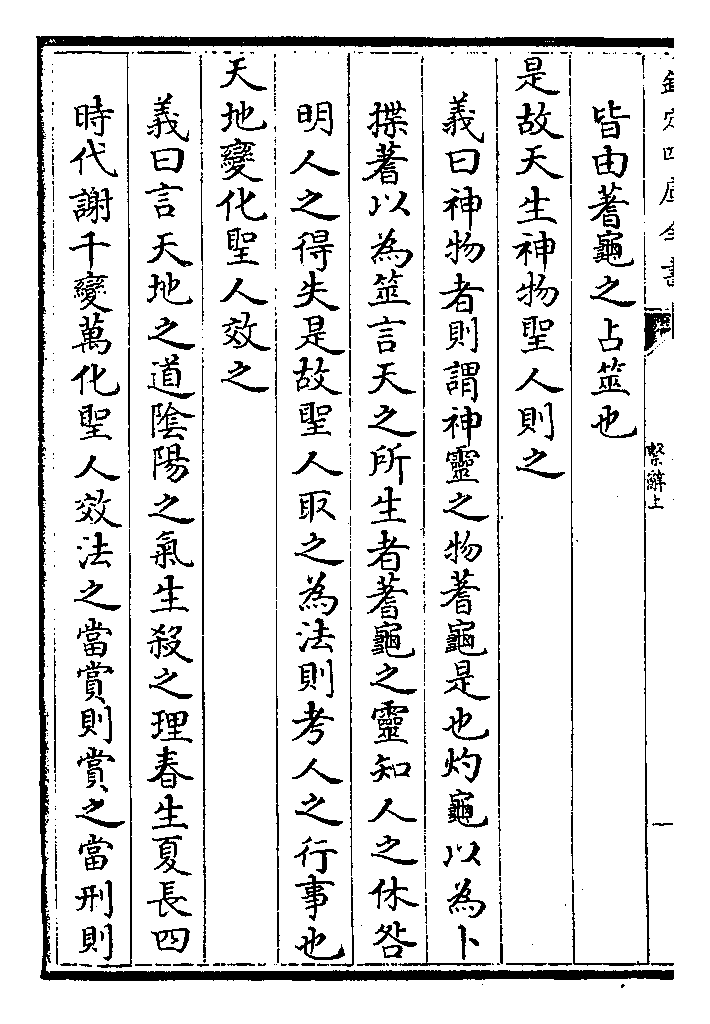 欽定四庫全書
繫辭上
皆由蓍龜之占筮也
是故天生神物聖人則之
義曰神物者則謂神靈之物蓍龜是也灼龜以為卜
揲蓍以為筮言天之所生者蓍龜之靈知人之休咎
明人之得失是故聖人取之為法則考人之行事也
天地變化聖人效之
義曰言天地之道陰陽之氣生殺之理春生夏長四
時代謝千變萬化聖人效法之當賞則賞之當刑則